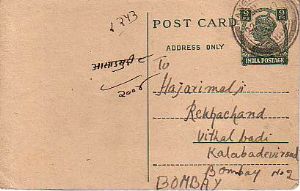 १९४३
POST CARD
9 PS
INDIA POSTAGE
ADDRESS ONLY
To
Hajarimalji
Rekhachand
Vithalbadi
Kalabadevi road
Bombay No 2
BOMBAY